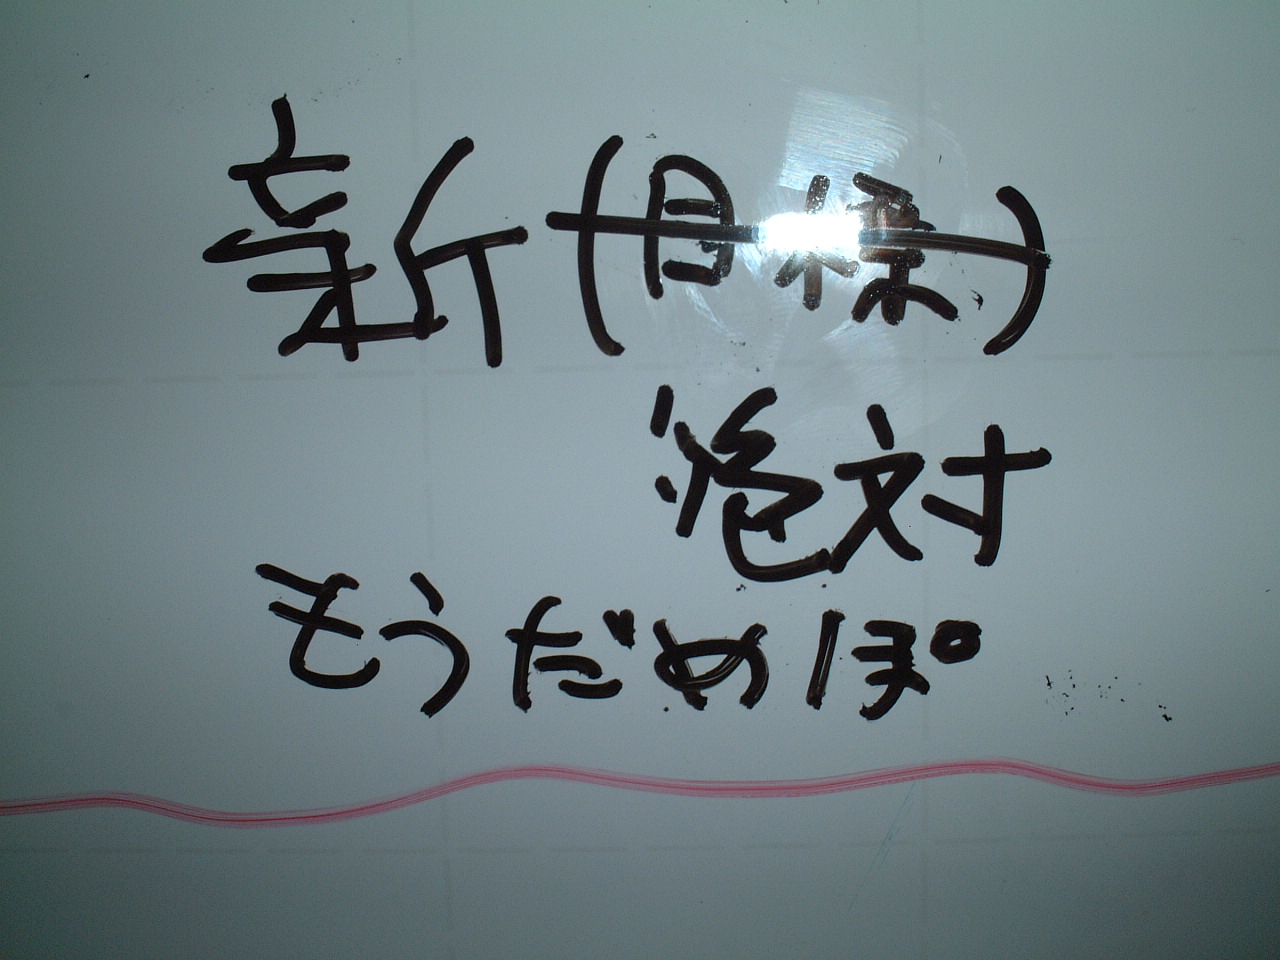 新(目標)
絶対
もうだめぽ